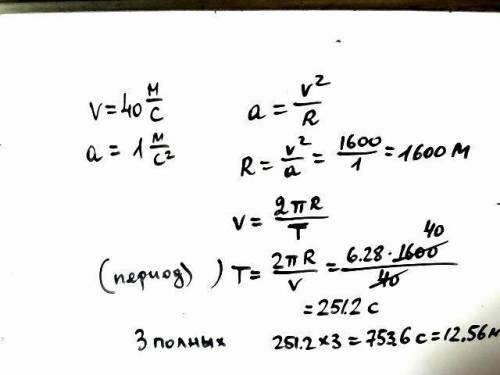 v = 40 м/с
a = 1 м/с²
a = v²/R
R = v²/a = 1600/1 = 1600 м
v = 2πR/T
(период) ) T = 2πR/v = 6.28 · 1600/40 40
= 251.2 с
3 полных 251.2 × 3 = 753.6 с = 12.56 м